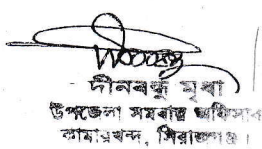 দীনবন্ধু মৃধা
উপজেলা সমবায় অফিসার
কামারখন্দ, সিরাজগঞ্জ।